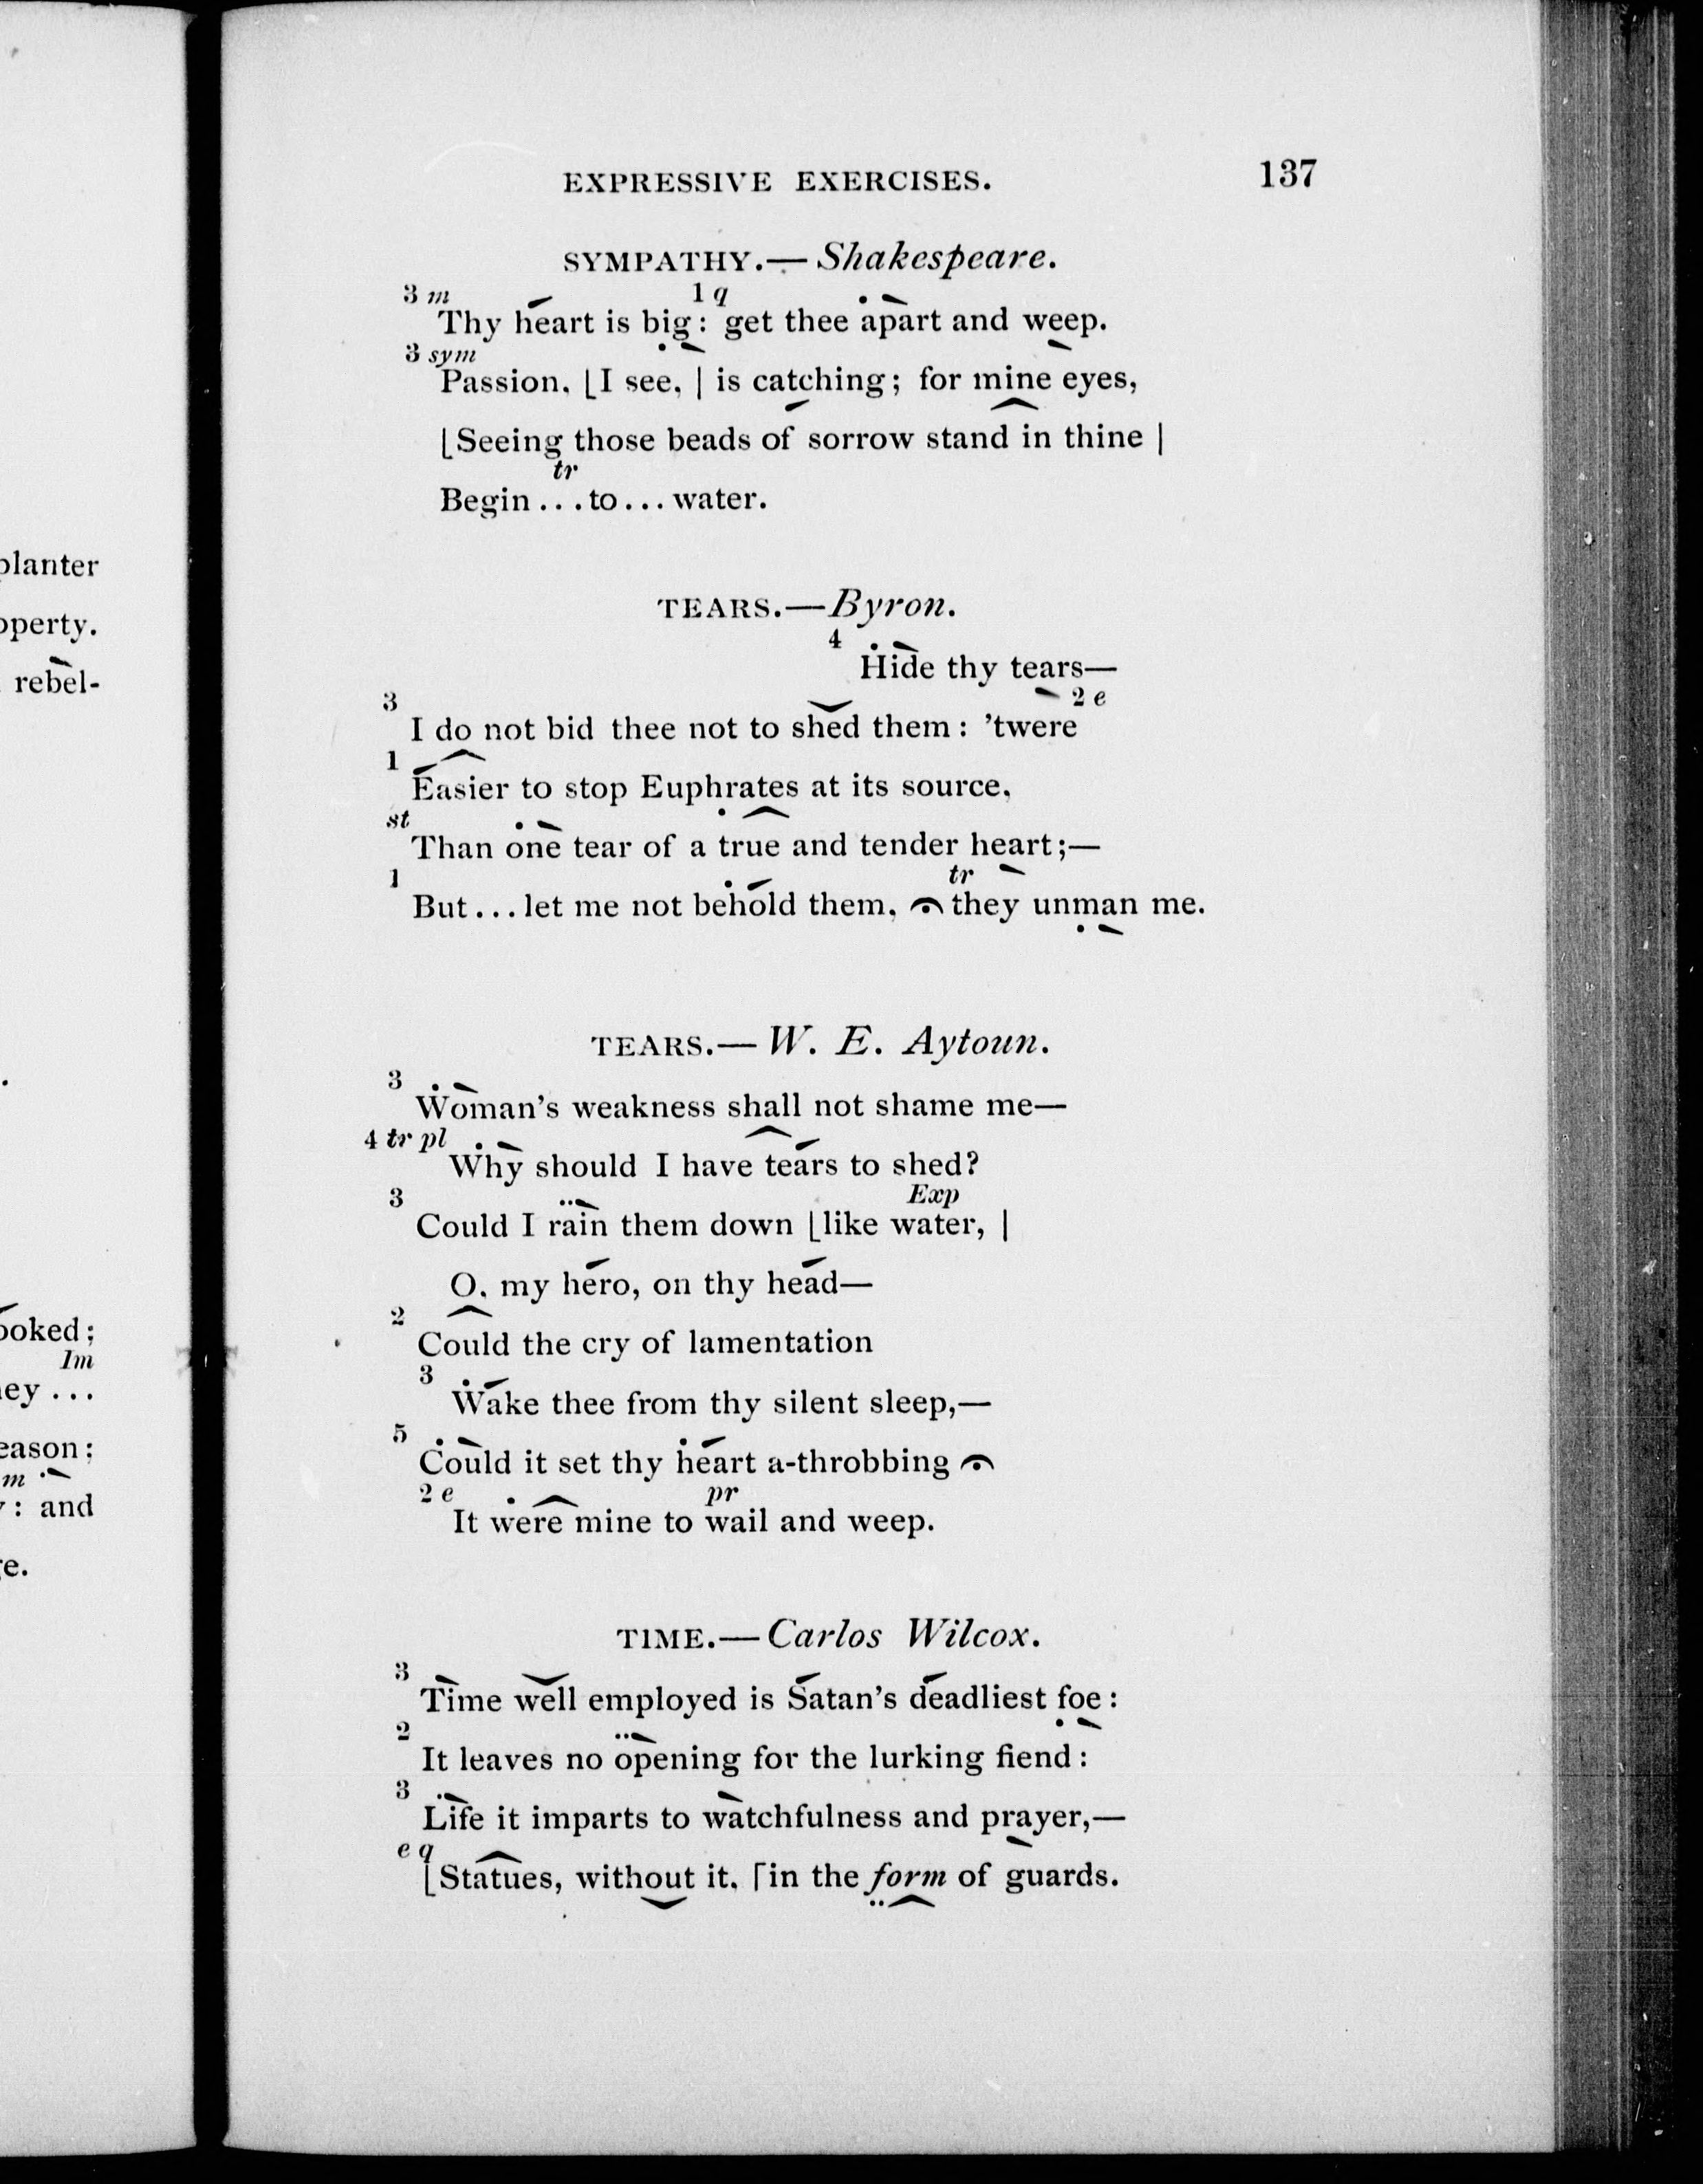 planter
operty.
rebel-
ooked;
Im
ey ...
eason:
m
: and
e.
EXPRESSIVE EXERCISES. 137
SYMPATHY.—Shakespeare.
3 m 1 q
Thy heart is big: get thee apart and weep.
3 sym
Passion, ⌊I see, | is catching; for mine eyes,
⌊Seeing those beads of sorrow stand in thine |
tr
Begin ... to ... water.
TEARS.—Byron.
4
Hide thy tears—
3 2 e
I do not bid thee not to shed them: 'twere
1
Easier to stop Euphrates at its source,
st
Than one tear of a true and tender heart;—
1 tr
But ... let me not behold them, 𝄐 they unman me.
TEARS.—W. E. Aytoun.
3
Woman's weakness shall not shame me—
4 tr pl
Why should I have tears to shed?
3 Exp
Could I rain them down ⌊like water, |
O, my hero, on thy head—
2
Could the cry of lamentation
3
Wake thee from thy silent sleep,—
5
Could it set thy heart a-throbbing 𝄐
2 e pr
It were mine to wail and weep.
TIME.—Carlos Wilcox.
3
Time well employed is Satan's deadliest foe:
2
It leaves no opening for the lurking fiend:
3
Life it imparts to watchfulness and prayer,—
e q
⌊Statues, without it, ⌈in the form of guards.